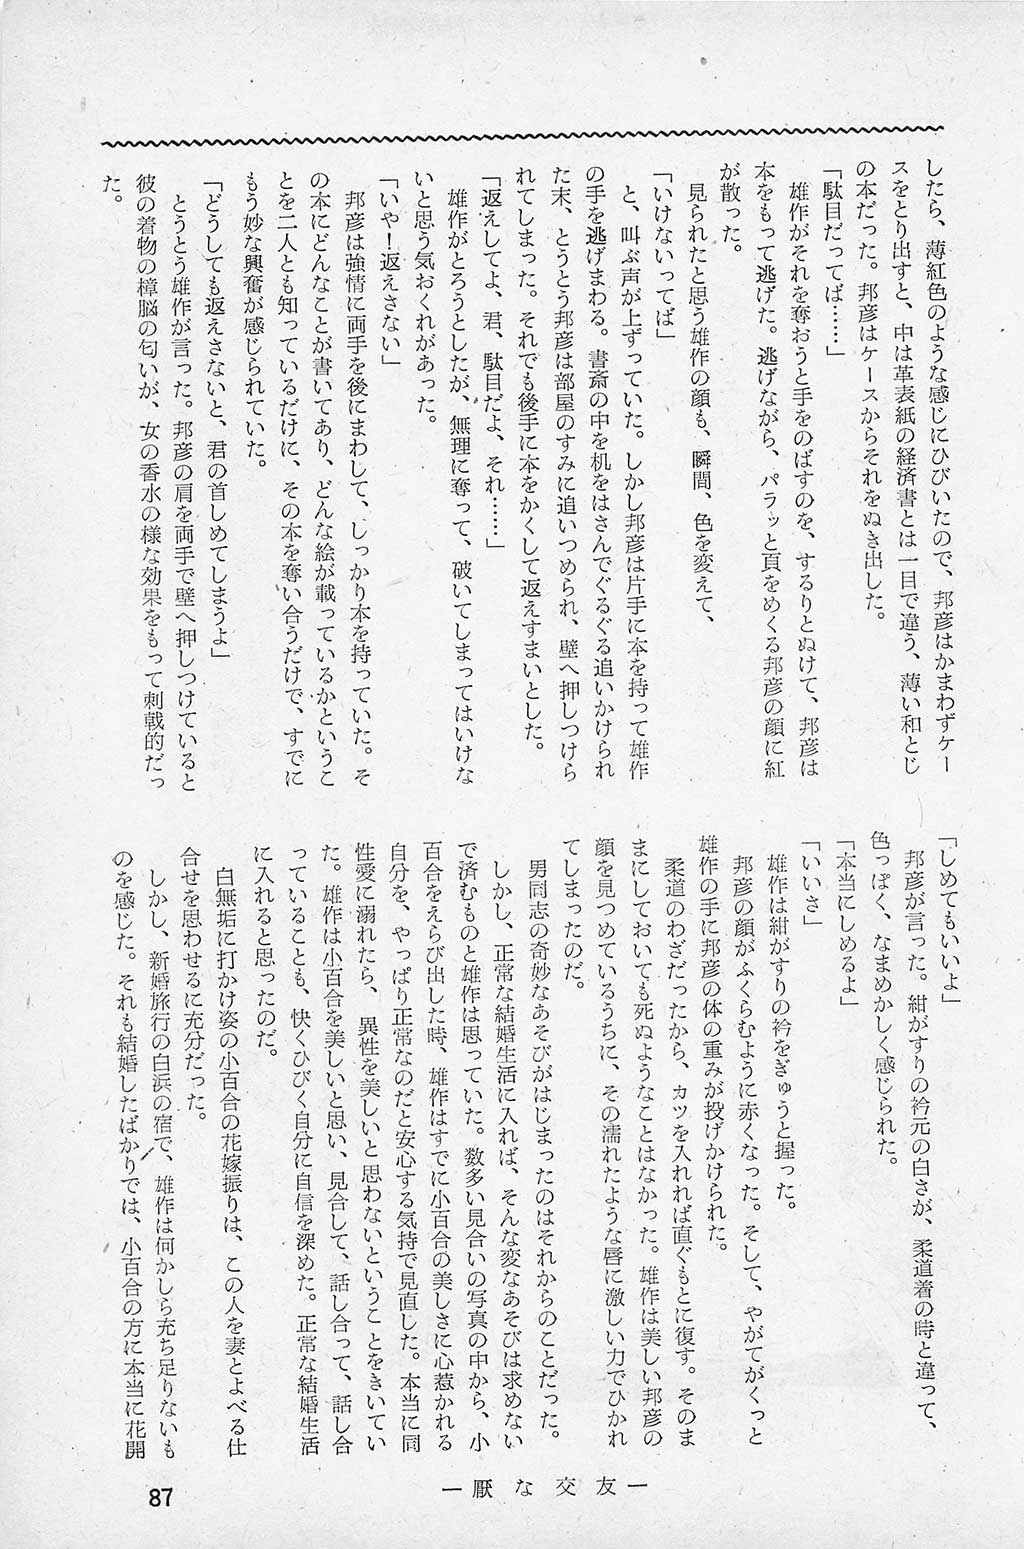 したら、薄紅色のような感じにひびいたので、邦彦はかまわずケー
スをとり出すと、中は革表紙の経済書とは一目で違う、薄い和とじ
の本だった。邦彦はケースからそれをぬき出した。
「駄目だってば………」
雄作がそれを奪おうと手をのばすのを、するりとぬけて、邦彦は
本をもって逃げた。逃げながら、パラッと頁をめくる邦彦の顔に紅
が散った。
見られたと思う雄作の顔も、瞬間、色を変えて、
「いけないってば」
と、叫ぶ声が上ずっていた。しかし邦彦は片手に本を持って雄作
の手を逃げまわる。書斎の中を机をはさんでぐるぐる追いかけられ
た末、とうとう邦彦は部屋のすみに追いつめられ、壁へ押しつけら
れてしまった。それでも後手に本をかくして返えすまいとした。
「返えしてよ、君、駄目だよ、それ………」
雄作がとろうとしたが、無理に奪って、破いてしまってはいけな
いと思う気おくれがあった。
「いや！返えさない」
邦彦は強情に両手を後にまわして、しっかり本を持っていた。そ
の本にどんなことが書いてあり、どんな絵が載っているかというこ
とを二人とも知っているだけに、その本を奪い合うだけで、すでに
もう妙な興奮が感じられていた。
「どうしても返えさないと、君の首しめてしまうよ」
とうとう雄作が言った。邦彦の肩を両手で壁へ押しつけていると
彼の着物の樟脳の匂いが、女の香水の様な効果をもって刺戟的だっ
た。
「しめてもいいよ」
邦彦が言った。紺がすりの衿元の白さが、柔道着の時と違って、
色っぽく、なまめかしく感じられた。
「本当にしめるよ」
「いいさ」
雄作は紺がすりの衿をぎゅうと握った。
邦彦の顔がふくらむように赤くなった。そして、やがてがくっと
雄作の手に邦彦の体の重みが投げかけられた。
柔道のわざだったから、カツを入れれば直ぐもとに復す。そのま
まにしておいても死ぬようなことはなかった。雄作は美しい邦彦の
顔を見つめているうちに、その濡れたような唇に激しい力でひかれ
てしまったのだ。
男同志の奇妙なあそびがはじまったのはそれからのことだった。
しかし、正常な結婚生活に入れば、そんな変なあそびは求めない
で済むものと雄作は思っていた。数多い見合いの写真の中から、小
百合をえらび出した時、雄作はすでに小百合の美しさに心惹かれる
自分を、やっぱり正常なのだと安心する気持で見直した。本当に同
性愛に溺れたら、異性を美しいと思わないということをきいてい
た。雄作は小百合を美しいと思い、見合して、話し合って、話し合
っていることも、快くひびく自分に自信を深めた。正常な結婚生活
に入れると思ったのだ。
白無垢に打かけ姿の小百合の花嫁振りは、この人を妻とよべる仕
合せを思わせるに充分だった。
しかし、新婚旅行の白浜の宿で、雄作は何かしら充ち足りないも
のを感じた。それも結婚したばかりでは、小百合の方に本当に花開
―厭な交友―
87